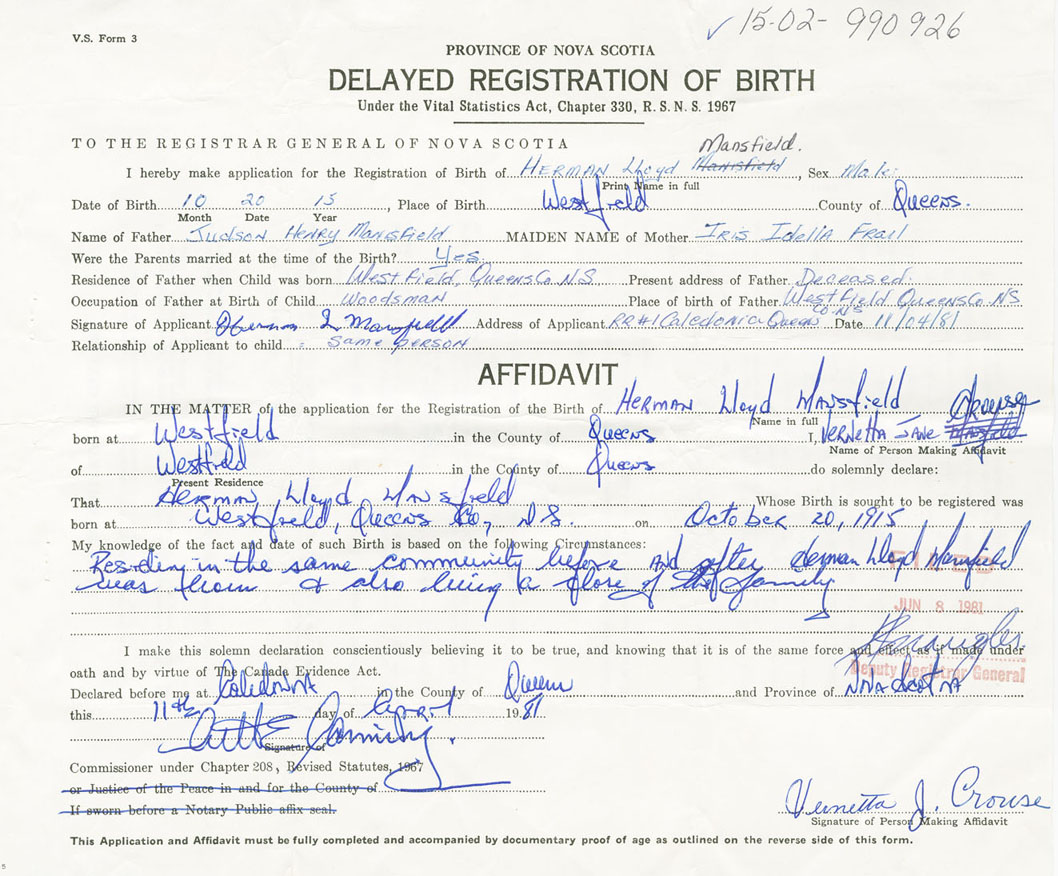 ✓ 15-02- 990926
V.S. Form 3
PROVINCE OF NOVA SCOTIA
DELAYED REGISTRATION OF BIRTH
Under the Vital Statistics Act, Chapter 330, R.S.N.S. 1967
TO THE REGISTRAR GENERAL OF NOVA SCOTIA
Mansfield.
I hereby make application for the Registration of Birth of HERMAN Lloyd Mansfield, Sex Male
Print Name in full
Date of Birth 10 20 15, Place of Birth Westfield County of Queens.
Month Date Year
Name of Father Judson Henry Mansfield MAIDEN NAME of Mother Iris Idella Frail
Were the Parents married at the time of the Birth? Yes
Residence of Father when Child was born Westfield, Queens Co. N.S Present address of Father Deceased.
Occupation of Father at Birth of Child Woodsman Place of birth of Father Westfield Queens Co. NS
Co. N.S
Signature of Applicant Herman L Mansfield Address of Applicant RR#1 Caledonia Queens Date 11/04/81
Relationship of Applicant to child same person
AFFIDAVIT
IN THE MATTER of the application for the Registration of the Birth of HERMAN Lloyd Mansfield Crouse
Name in full
born at Westfield in the County of Queens I, Vernetta Jane Mansfield
Name of Person Making Affidavit
of Westfield in the County of Queens do solemnly declare:
Present Residence
That Herman Lloyd Mansfield Whose Birth is sought to be registered was
born at Westfield, Queens Co, N.S. on October 20, 1915
My knowledge of the fact and date of such Birth is based on the following Circumstances:
Residing in the same community before and after Herman Lloyd Mansfield
was born & also being a close of the family
JUN 8 1981
I make this solemn declaration conscientiously believing it to be true, and knowing that it is of the same force and effect as if made under
oath and by virtue of The Canada Evidence Act.
Deputy Registrar General
Declared before me at Caledonia in the County of Queens and Province of Nova Scotia
this 11th day of April 1981
Signature of
Commissioner under Chapter 208, Revised Statutes, 1967
or Justice of the Peace in and for the County of
If sworn before a Notary Public affix seal.
Vernetta J. Crouse
Signature of Person Making Affidavit
This Application and Affidavit must be fully completed and accompanied by documentary proof of age as outlined on the reverse side of this form.